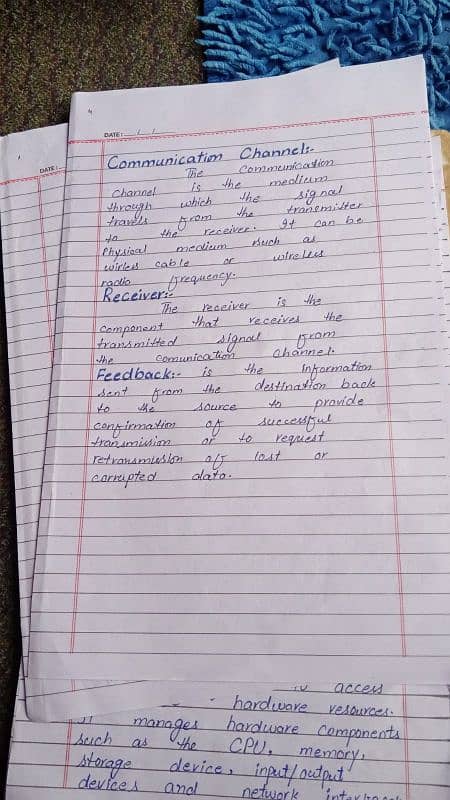 DATE:
DATE:
Communication Channel:-
The communication
channel is the medium
through which the signal
travels from the transmitter
to the receiver. It can be
Physical medium such as
wirles cable or wireless
radio frequency.
Receiver:-
The receiver is the
component that receives the
transmitted signal from
the comunication channel.
Feedback:- is the information
sent from the destination back
to the source to provide
confirmation of successful
transmission or to request
retransmission of lost or
corrupted data.
access
hardware resources.
It manages hardware components
such as the CPU, memory,
storage device, input/output
devices and network